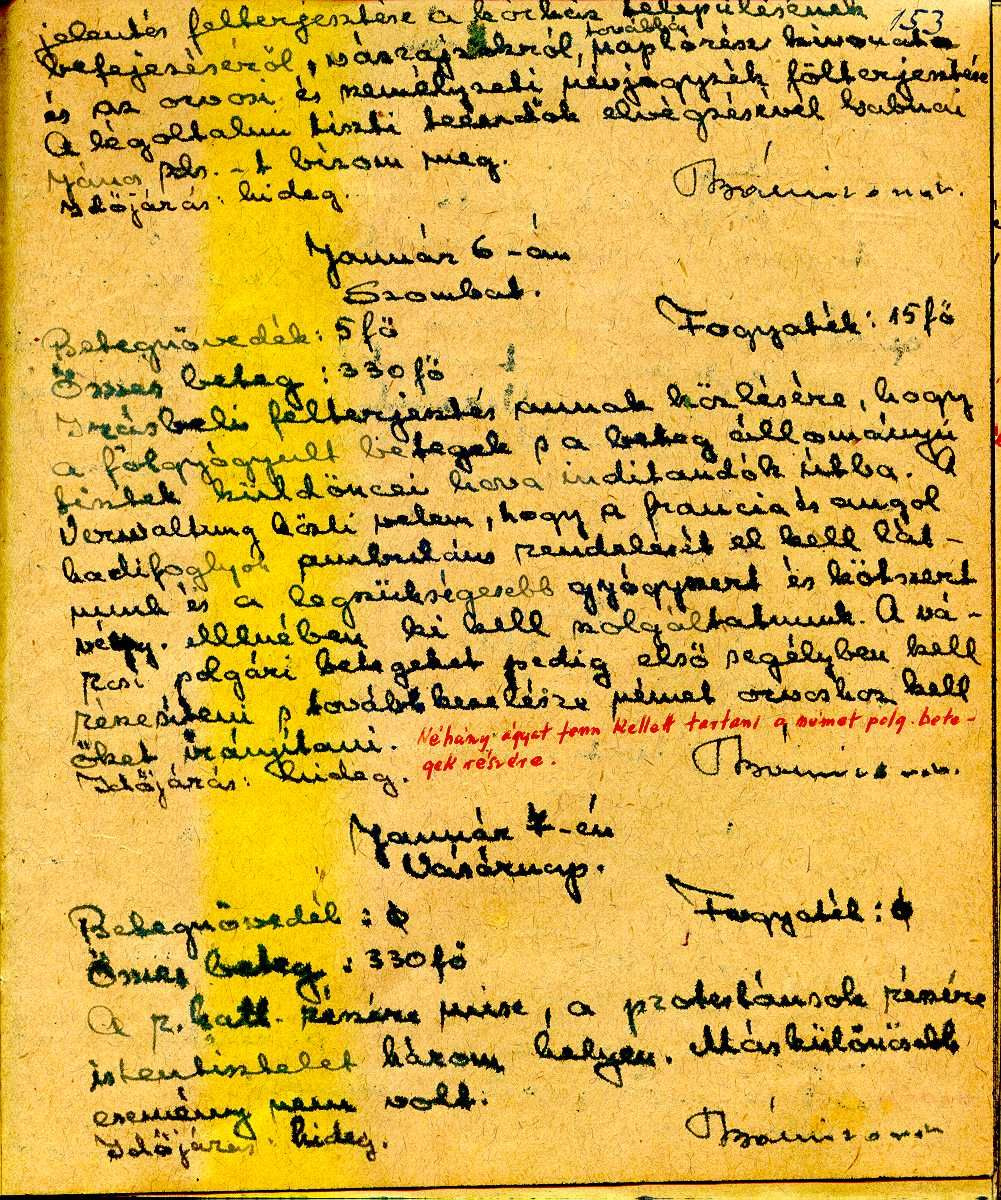 153
jelentés felterjesztése a kórház településének
befejezéséről, vászajzokról, további naplórész kivonata
és az orvosi és személyzeti névjegyzék fölterjesztése
A légoltalmi tiszti teendők elvégzésével
János -t bízom meg.
Időjárás: hideg.
Január 6-án
Szombat.
Betegnövedék: 5 fő
Fogyaték: 15 fő
Összes beteg: 330 fő
Irásbeli felterjesztés annak közlésére, hogy
a fölgyógyult betegek s a beteg állományú
tisztek küldöncei hova inditandók útba. A
Verwaltung közli velem, hogy a francia és angol
hadifoglyok ambuláns rendelését el kell lát-
nunk és a legszükségesebb gyógyszert és kötszert
vény. ellenében ki kell szolgáltatnunk. A vá-
rosi polgári betegeket pedig első segélyben kell
részesíteni s további kezelésre német orvoshoz kell
őket irányítani.
Néhány ágyat fenn kellett tartani a német polg. bete-
gek részére.
Időjárás: hideg.
Január 7-én
Vasárnap.
Betegnövedék: 0
Fogyaték: 0
Összes beteg: 330 fő
A r. kath. részére mise, a protestánsok részére
istentisztelet három helyen. Máskülönösebb
esemény nem volt.
Időjárás: hideg.